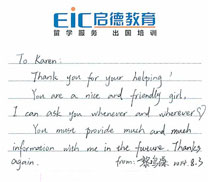 EIC启德教育
留学服务 出国培训
To Karen:
Thank you for your helping!
You are a nice and friendly girl.
I can ask you whenever and wherever♡
You muse provide much and much
information with me in the future. Thanks
again. from: 2014.8.3